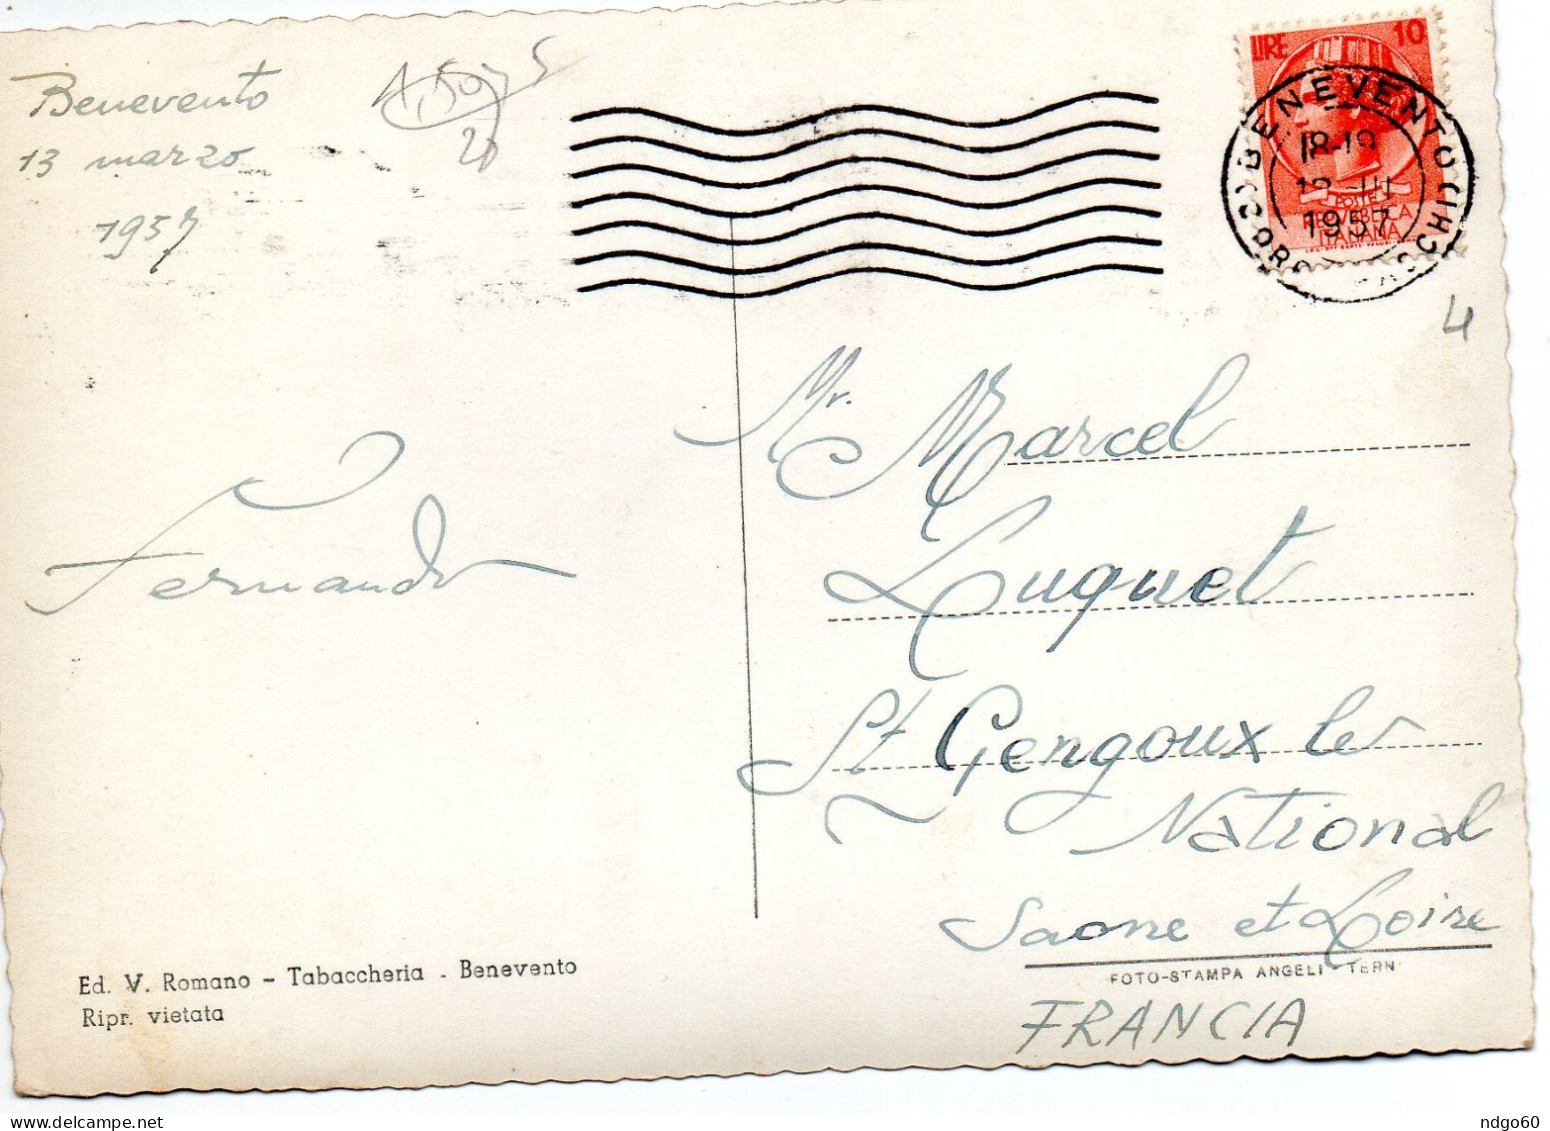 Benevento
13 marzo
1957
LIRE 10
POSTE
REPVBBLICA
ITALIANA
BENEVENTO
18-19
III
1957
4
Fernando
Mr. Marcel
Luquet
St Gengoux le
National
Saone et Loire
FRANCIA
Ed. V. Romano - Tabaccheria - Benevento
Ripr. vietata
FOTO-STAMPA ANGELI - TERNI
ndgo60